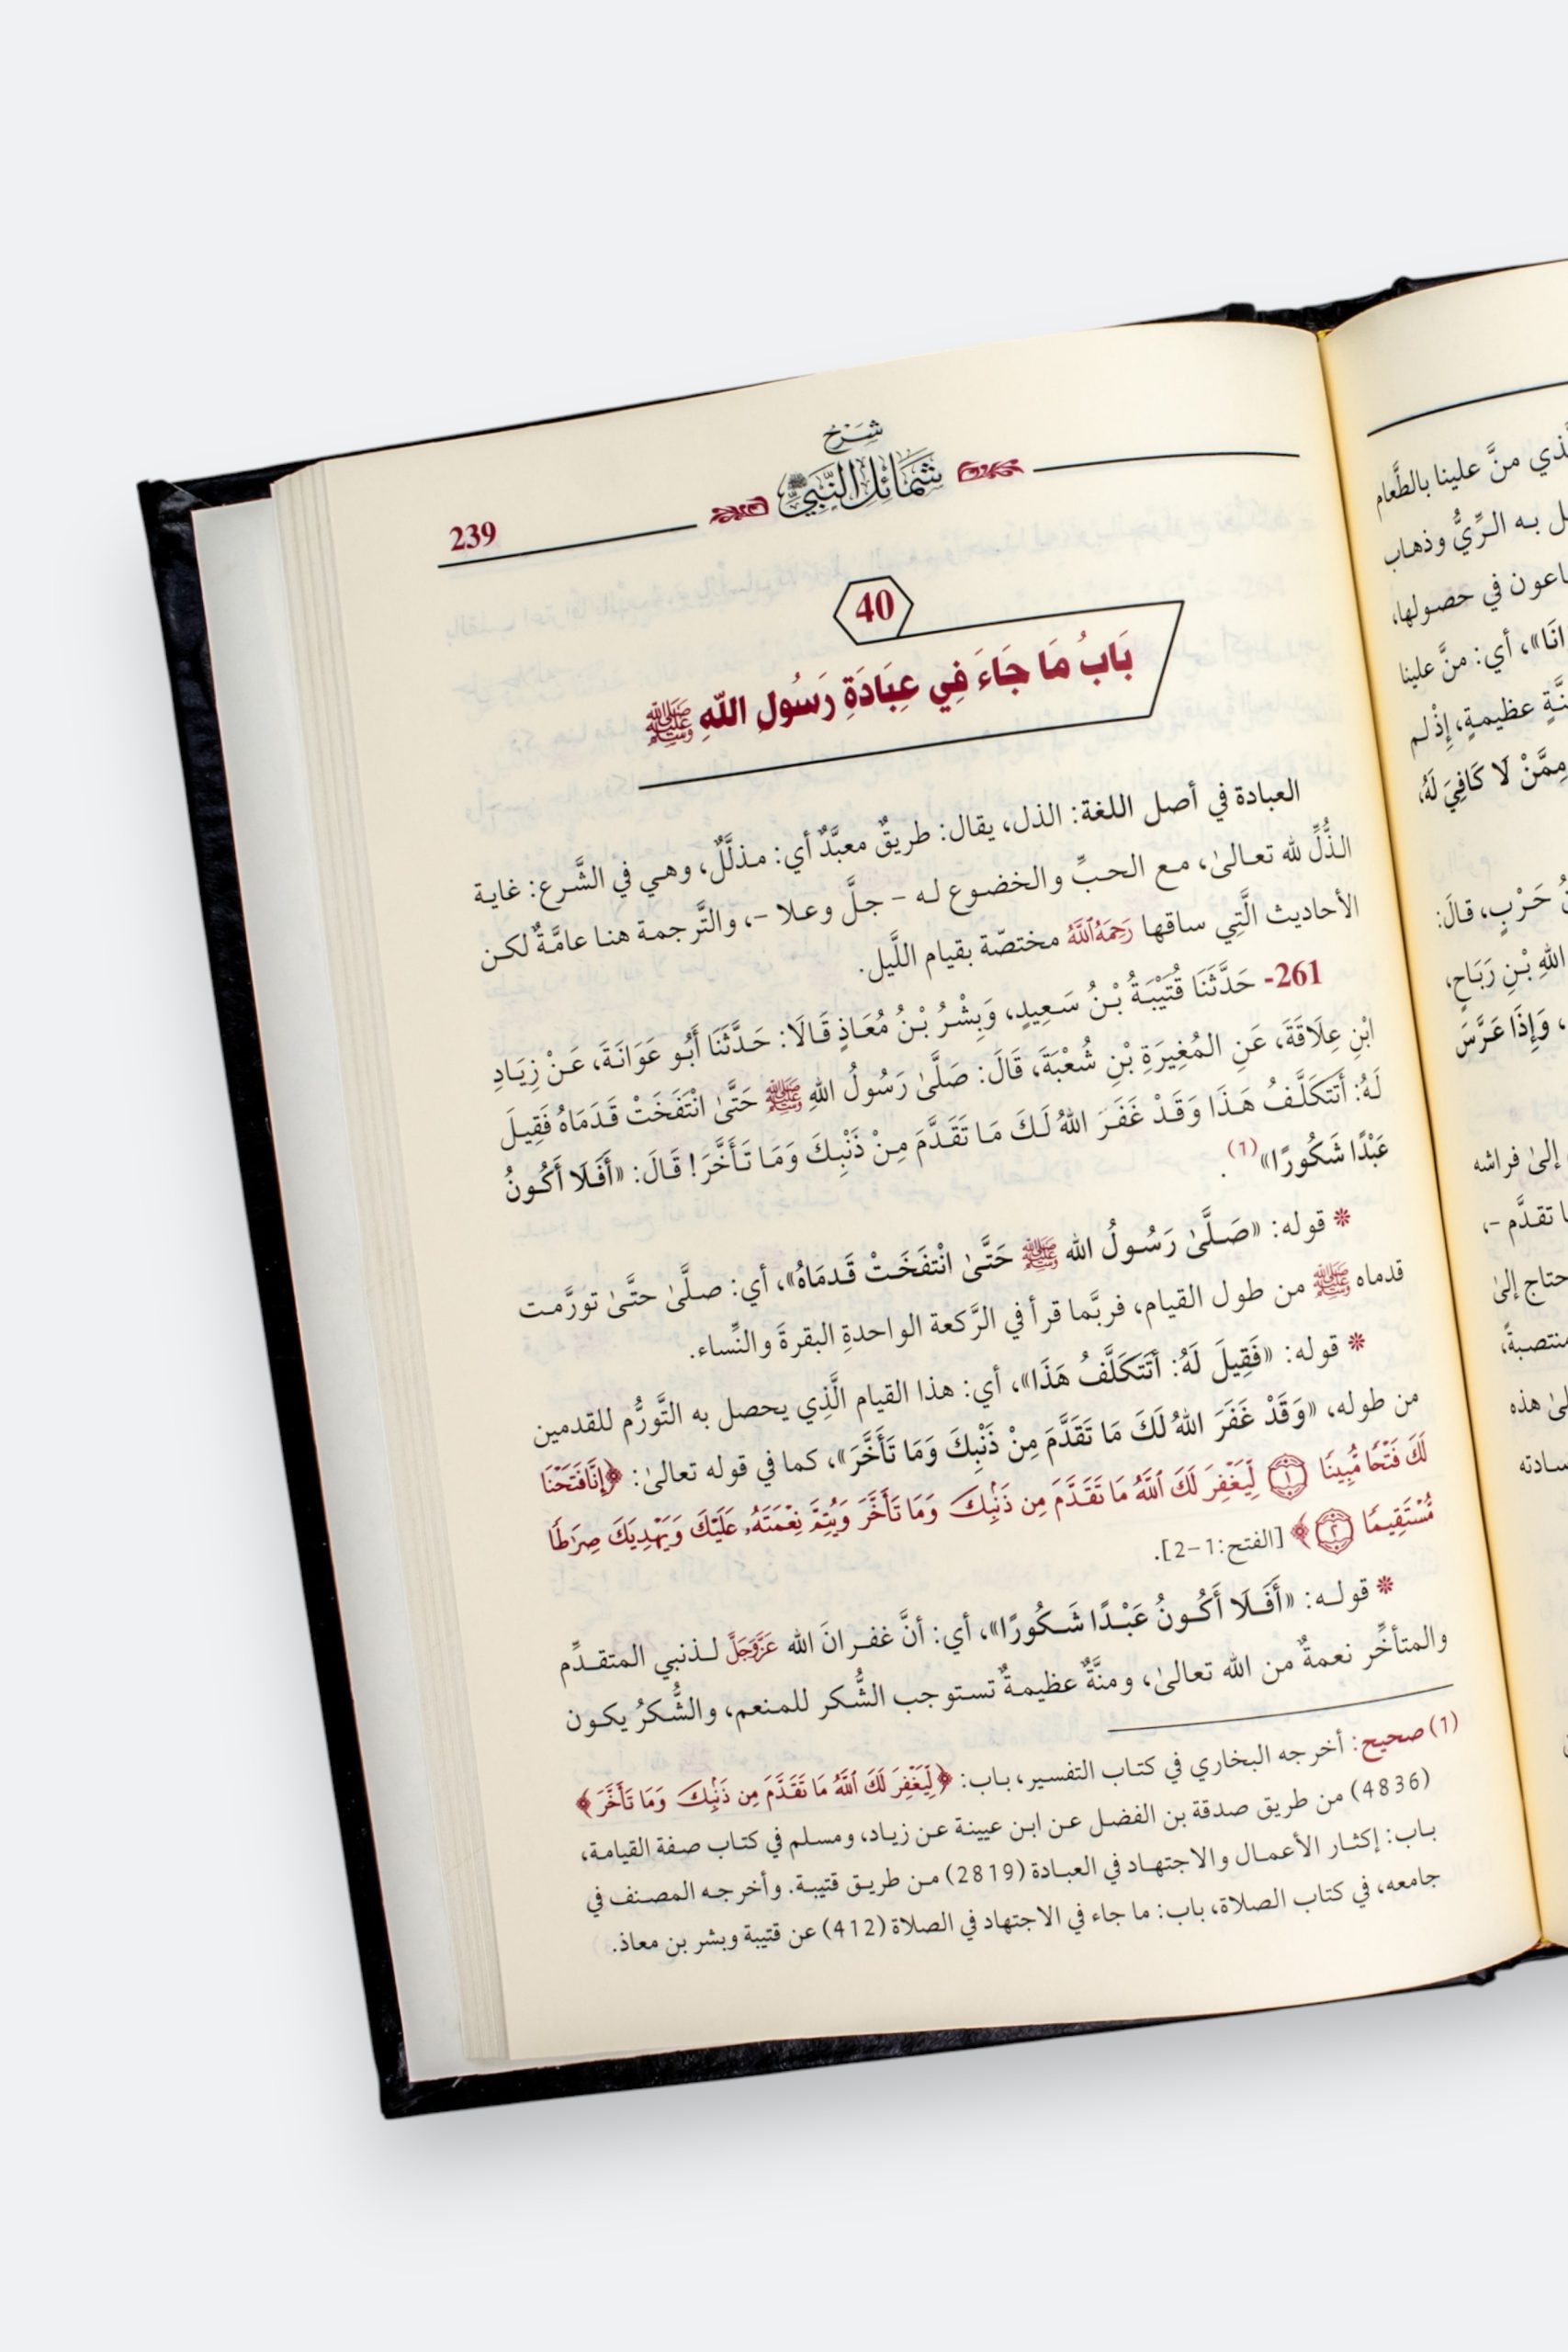 شرح
شمائل النبي ﷺ
239
40
بَابُ مَا جَاءَ فِي عِبَادَةِ رَسُولِ اللهِ ﷺ
العبادة في أصل اللغة: الذل، يقال: طريقٌ معبَّدٌ أي: مذلَّلٌ، وهي في الشَّرع: غاية
الذُّلِّ لله تعالىٰ، مع الحبِّ والخضوع له – جلَّ وعلا –، والتَّرجمة هنا عامَّةٌ لكن
الأحاديث الَّتِي ساقها رَحِمَهُ ٱللَّهُ مختصّة بقيام اللَّيل.
261- حَدَّثَنَا قُتَيْبَةُ بْنُ سَعِيدٍ، وَبِشْرُ بْنُ مُعَاذٍ قَالَا: حَدَّثَنَا أَبُو عَوَانَةَ، عَنْ زِيَادِ
ابْنِ عِلَاقَةَ، عَنِ المُغِيرَةِ بْنِ شُعْبَةَ، قَالَ: صَلَّىٰ رَسُولُ اللهِ ﷺ حَتَّىٰ انْتَفَخَتْ قَدَمَاهُ فَقِيلَ
لَهُ: أَتَتَكَلَّفُ هَذَا وَقَدْ غَفَرَ اللهُ لَكَ مَا تَقَدَّمَ مِنْ ذَنْبِكَ وَمَا تَأَخَّرَ! قَالَ: «أَفَلَا أَكُونُ
عَبْدًا شَكُورًا»(1).
* قوله: «صَلَّىٰ رَسُولُ الله ﷺ حَتَّىٰ انْتفَخَتْ قَدمَاهُ»، أي: صلَّىٰ حتَّىٰ تورَّمت
قدماه ﷺ من طول القيام، فربَّما قرأ في الرَّكعة الواحدةِ البقرةَ والنِّساء.
* قوله: «فَقِيلَ لَهُ: أَتَتَكَلَّفُ هَذَا»، أي: هذا القيام الَّذِي يحصل به التَّورُّم للقدمين
من طوله، «وَقَدْ غَفَرَ اللهُ لَكَ مَا تَقَدَّمَ مِنْ ذَنْبِكَ وَمَا تَأَخَّرَ»، كما في قوله تعالىٰ: ﴿إِنَّا فَتَحْنَا
لَكَ فَتْحًا مُّبِينًا ١ لِّيَغْفِرَ لَكَ ٱللَّهُ مَا تَقَدَّمَ مِن ذَنۢبِكَ وَمَا تَأَخَّرَ وَيُتِمَّ نِعْمَتَهُۥ عَلَيْكَ وَيَهْدِيَكَ صِرَٰطًا
مُّسْتَقِيمًا ٢﴾ [الفتح: 1-2].
* قوله: «أَفَلَا أَكُونُ عَبْدًا شَكُورًا»، أي: أنَّ غفرانَ الله عَزَّوَجَلَّ لذنبي المتقدِّم
والمتأخِّر نعمةٌ من الله تعالىٰ، ومنَّةٌ عظيمةٌ تستوجب الشُّكر للمنعم، والشُّكرُ يكون
(1) صحيح: أخرجه البخاري في كتاب التفسير، باب: ﴿لِّيَغْفِرَ لَكَ ٱللَّهُ مَا تَقَدَّمَ مِن ذَنۢبِكَ وَمَا تَأَخَّرَ﴾
(4836) من طريق صدقة بن الفضل عن ابن عيينة عن زياد، ومسلم في كتاب صفة القيامة،
باب: إكثار الأعمال والاجتهاد في العبادة (2819) من طريق قتيبة. وأخرجه المصنف في
جامعه، في كتاب الصلاة، باب: ما جاء في الاجتهاد في الصلاة (412) عن قتيبة وبشر بن معاذ.
منَّ علينا بالطَّعام
به الرِّيُّ وذهاب
في حصولها،
أي: منَّ علينا
عظيمةٍ، إِذْ لم
مِمَّنْ لَا كَافِيَ لَهُ،
حَرْبٍ، قالَ:
اللهِ بْنِ رَبَاحٍ،
وَإِذَا عَرَّسَ
إلىٰ فراشه
تقدَّم –،
إلىٰ
منتصبةً،
هذه